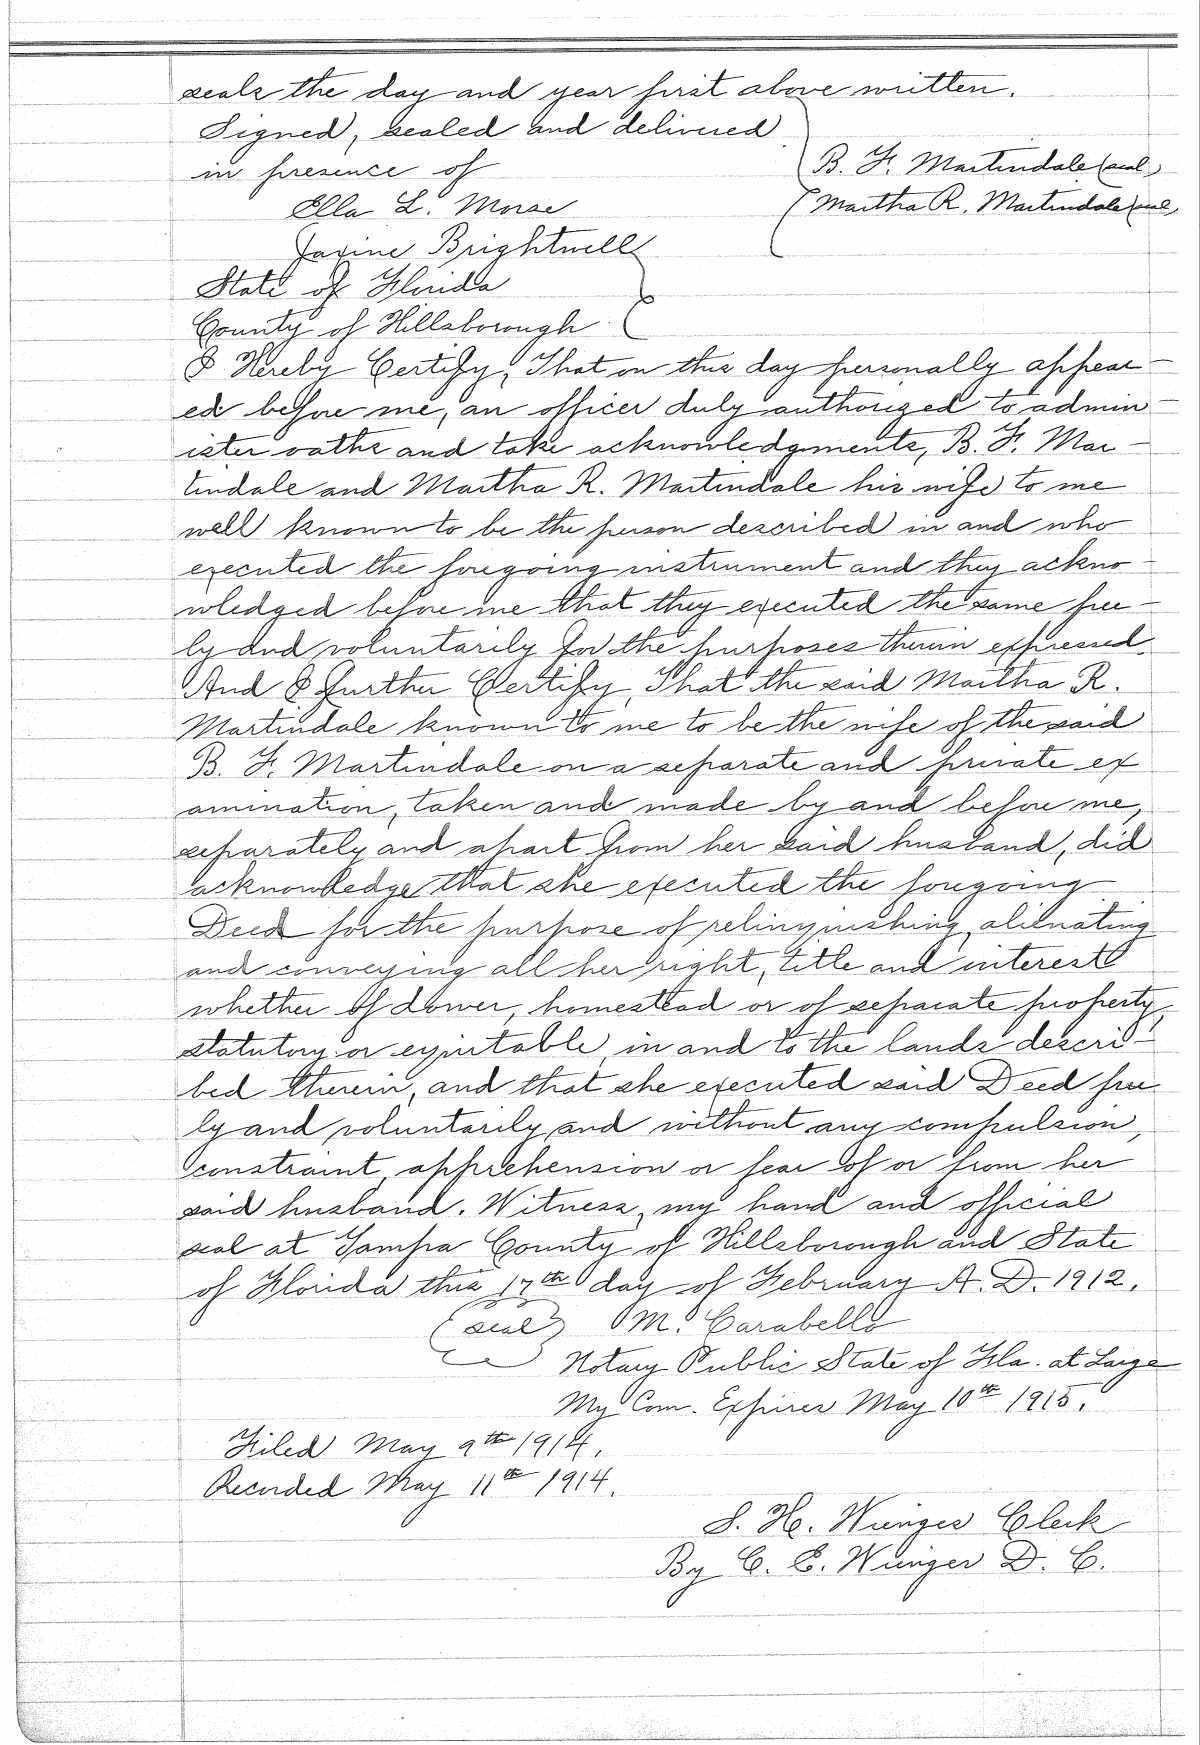 seals the day and year first above written.
Signed, sealed and delivered
in presence of
B. F. Martindale (seal)
Ella L. Morse
Martha R. Martindale (seal)
Brightwell
State of Florida
County of Hillsborough
I Hereby Certify, That on this day personally appear-
ed before me, an officer duly authorized to admin-
ister oaths and take acknowledgments, B. F. Mar-
tindale and Martha R. Martindale his wife to me
well known to be the person described in and who
executed the foregoing instrument and they ackno-
wledged before me that they executed the same free-
ly and voluntarily for the purposes therein expressed.
And I further Certify, That the said Martha R.
Martindale known to me to be the wife of the said
B. F. Martindale on a separate and private ex
amination, taken and made by and before me,
separately and apart from her said husband, did
acknowledge that she executed the foregoing
Deed for the purpose of relinquishing, alienating
and conveying all her right, title and interest
whether of dower, homestead or of separate property,
statutory or equitable, in and to the lands descri-
bed therein, and that she executed said Deed free
ly and voluntarily and without any compulsion,
constraint, apprehension or fear of or from her
said husband. Witness, my hand and official
seal at Tampa County of Hillsborough and State
of Florida this 17th day of February A. D. 1912.
(seal) M. Carabello
Notary Public State of Fla. at Large
My Com. Expires May 10th 1915.
Filed May 9th 1914.
Recorded May 11th 1914.
S. H. Clerk
By C. E. D. C.